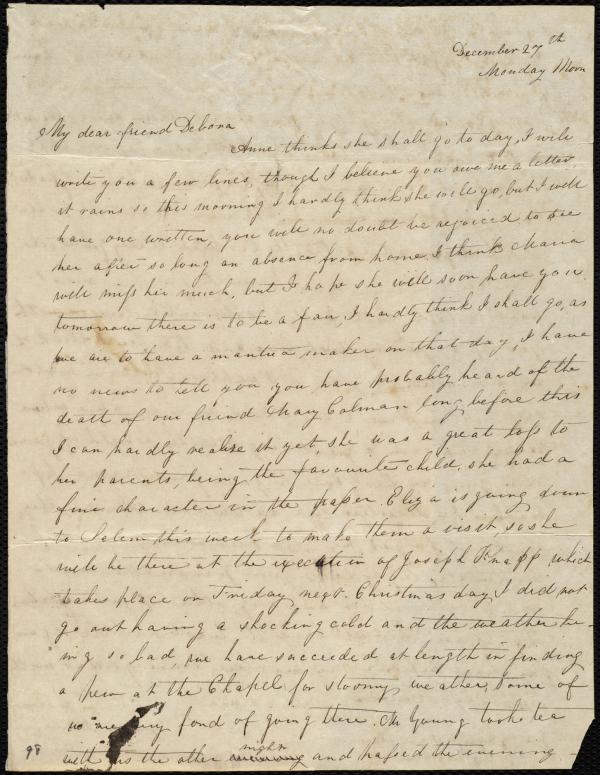 December 27th
Monday Morn
My dear friend Debora
Anne thinks she shall go to day, I will
write you a few lines, though I believe you owe me a letter,
it rains so this morning I hardly think she will go, but I will
have one written, you will no doubt be rejoiced to see
her after so long an absence from home, I think Maria
will miss her much, but I hope she will soon have you.
tomorrow there is to be a fair, I hardly think I shall go, as
we are to have a mantua maker on that day, I have
no news to tell you you have probably heard of the
death of our friend Mary Colman long before this
I can hardly realize it yet, she was a great loss to
her parents, being the favourite child, she had a
fine character in the paper. Eliza is going down
to Salem this week to make them a visit, so she
will be there at the execution of Joseph Knapp which
takes place on Friday next. Christmas day I did not
go out having a shocking cold and the weather be-
ing so bad, we have succeeded at length in finding
a pew at the Chapel, for stormy weather, some of
us are very fond of going there. Mr Young took tea
with us the other night and passed the evening
98